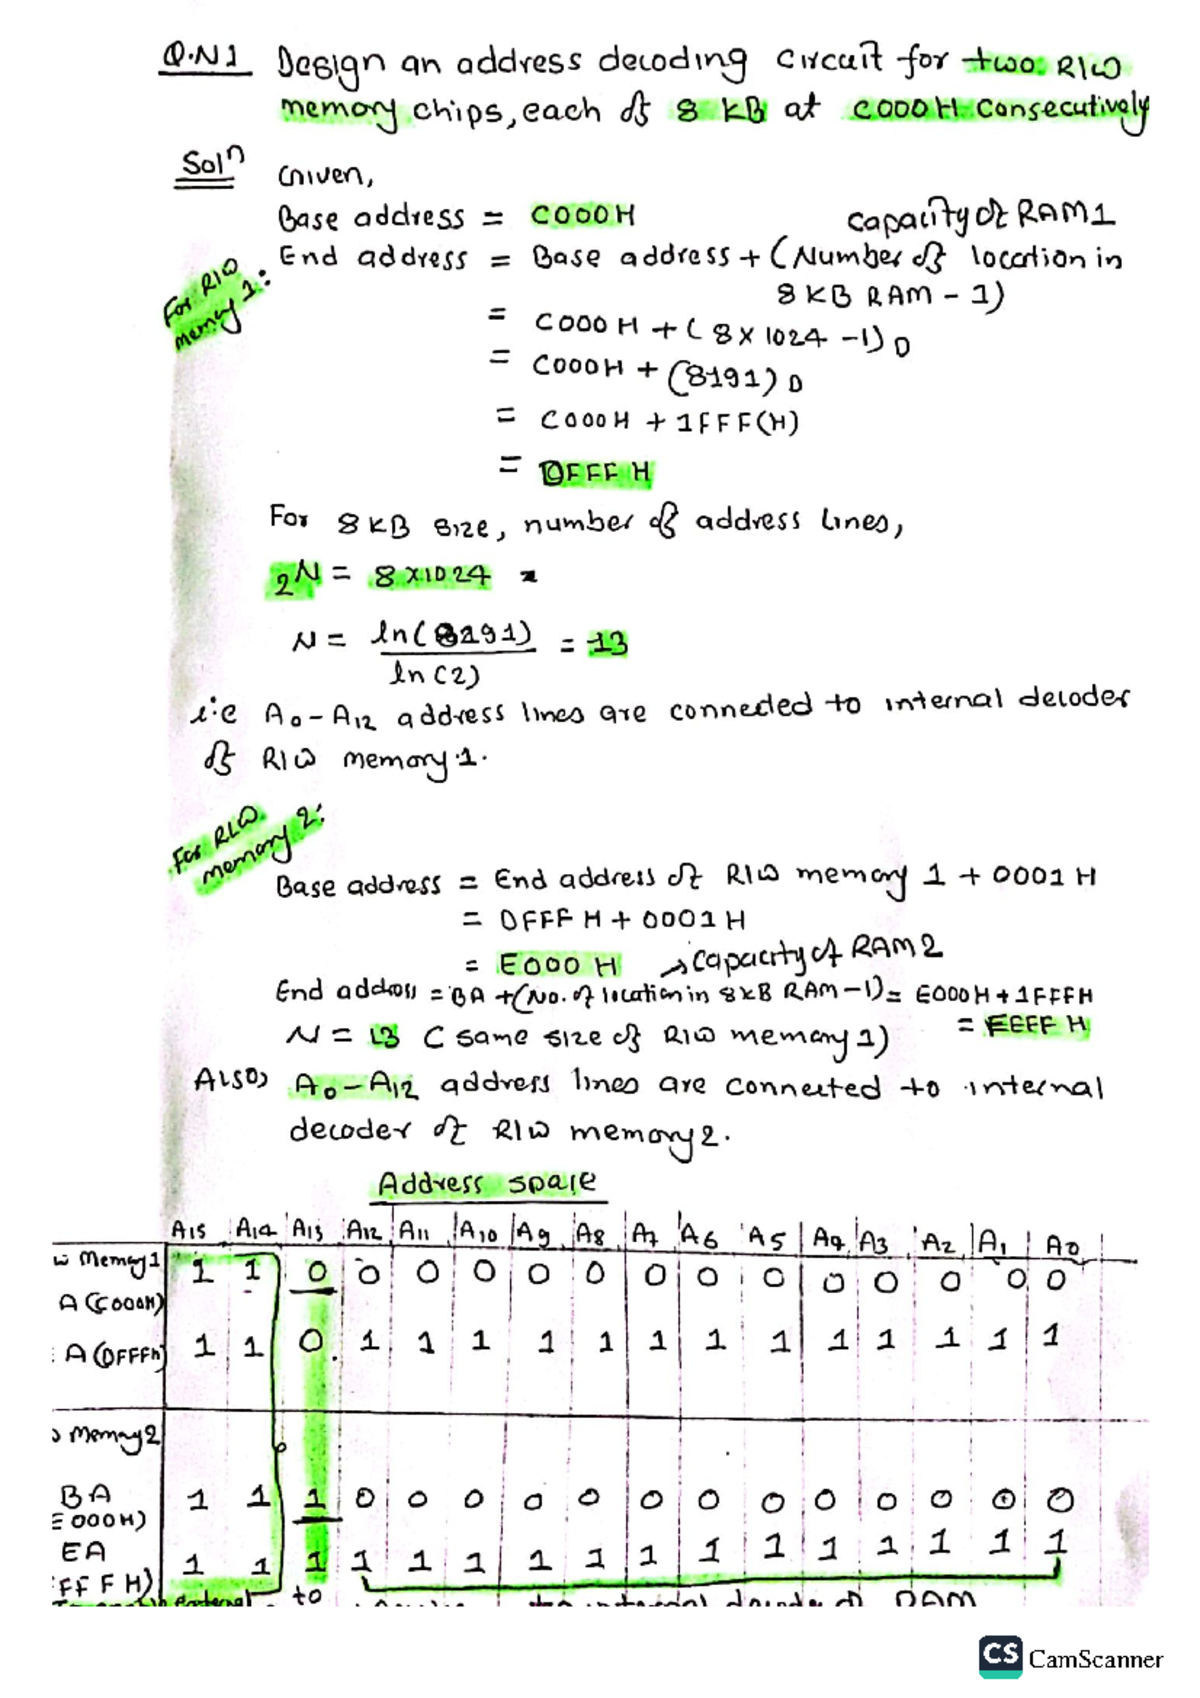 Q.N1 Design an address decoding circuit for two R/W
memory chips, each of 8 KB at C000H consecutively
Solⁿ Given,
Base address = C000H
capacity of RAM1
End address = Base address + (Number of location in
8KB RAM - 1)
For R/W
memory 1:
= C000H + (8×1024 -1)D
= C000H + (8191)D
= C000H + 1FFF(H)
= DFFF H
For 8KB size, number of address lines,
2^N = 8×1024
N = ln(8191)/ln(2) = 13
i.e A0-A12 address lines are connected to internal decoder
of R/W memory 1.
For R/W
memory 2:
Base address = End address of R/W memory 1 + 0001H
= DFFF H + 0001H
= E000H → capacity of RAM2
End address = BA + (No. of location in 8KB RAM-1) = E000H + 1FFFH
= FFFF H
N = 13 (same size of R/W memory 1)
Also, A0-A12 address lines are connected to internal
decoder of R/W memory 2.
Address space
A15 A14 A13 A12 A11 A10 A9 A8 A7 A6 A5 A4 A3 A2 A1 A0
w Memory1 1 1 0 0 0 0 0 0 0 0 0 0 0 0 0 0
A (C000H)
A (DFFFH) 1 1 0 1 1 1 1 1 1 1 1 1 1 1 1 1
Memory2
BA 1 1 1 0 0 0 0 0 0 0 0 0 0 0 0 0
E000H)
EA 1 1 1 1 1 1 1 1 1 1 1 1 1 1 1 1
FF F H)
to internal decoder of RAM
CS CamScanner